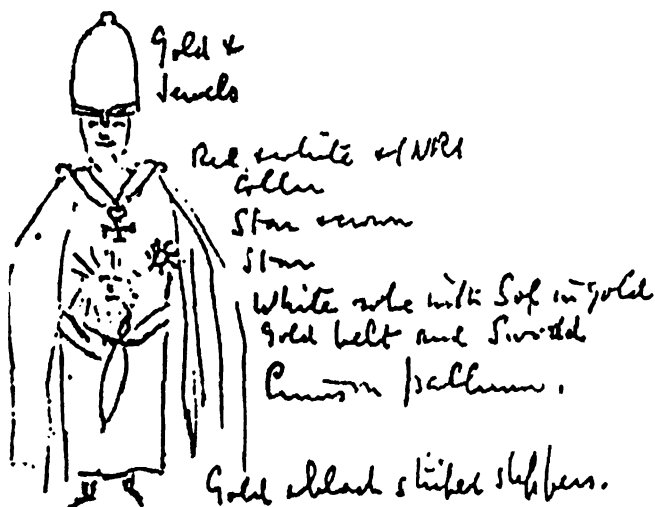 Gold &
Jewels
Red & white & INRI
Collar
Star & crown
Star
White robe with Sol in gold
Gold belt and Sword
Crimson pallium.
Gold & black striped slippers.